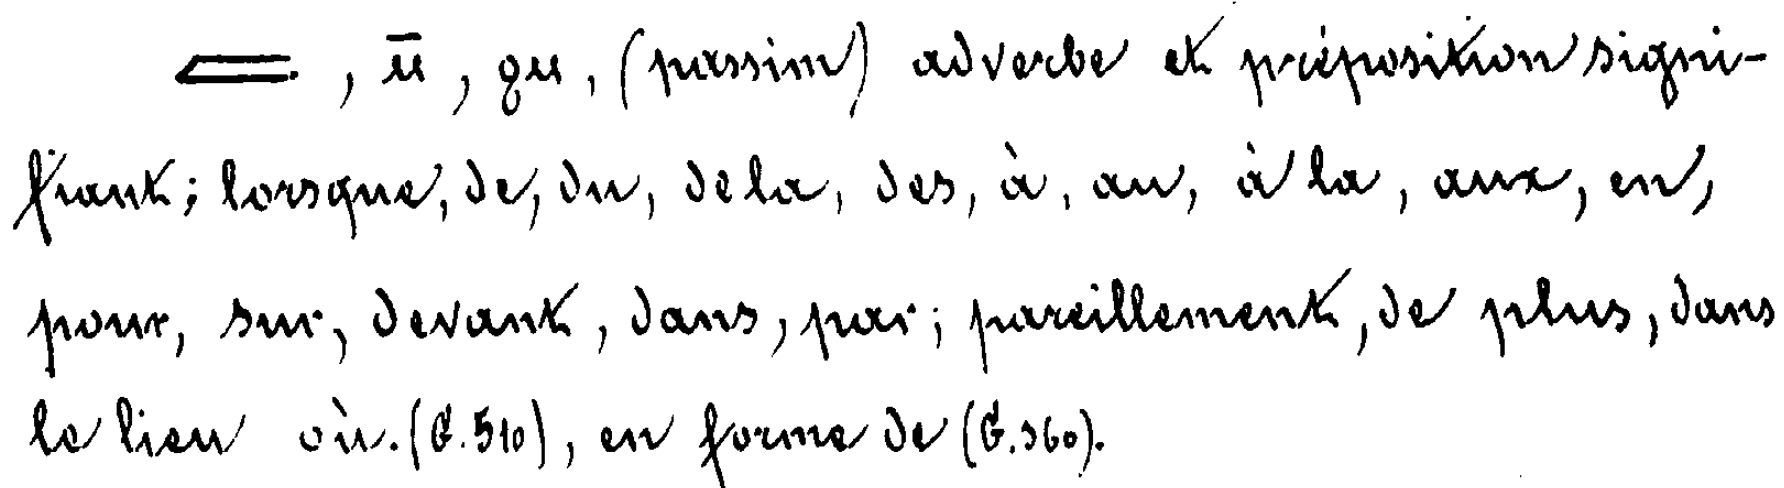 𓐛, ū, qu, (passim) adverbe et préposition signi-
fiant; lorsque, de, du, de la, des, à, au, à la, aux, en,
pour, sur, devant, dans, par; pareillement, de plus, dans
le lieu où. (G. 510), en forme de (G. 360).